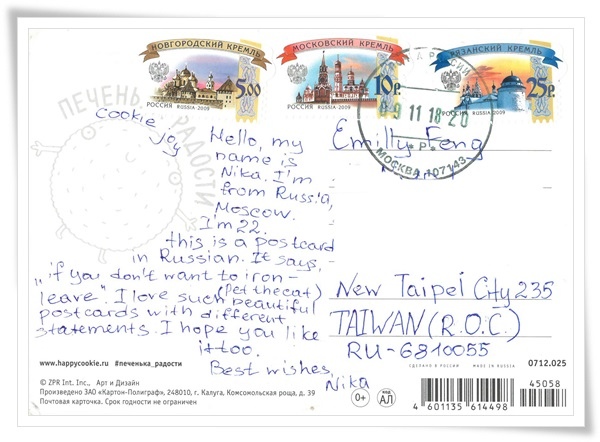 НОВГОРОДСКИЙ КРЕМЛЬ
5.00
РОССИЯ RUSSIA 2009
МОСКОВСКИЙ КРЕМЛЬ
10р
РОССИЯ RUSSIA 2009
РЯЗАНСКИЙ КРЕМЛЬ
25р
РОССИЯ RUSSIA 2009
9 11 18-20
МОСКВА 107143
ПЕЧЕНЬКА РАДОСТИ
Cookie
joy
Hello, my
name is
Nika. I'm
from Russia,
Moscow.
I'm 22.
this is a postcard
in Russian. It says,
„if you don't want to iron –
leave". I love such beautiful
(pet the cat)
postcards with different
statements. I hope you like
it too.
Best wishes,
Nika
Emilty Feng
New Taipei City 235
TAIWAN (R.O.C.)
RU-6810055
www.happycookie.ru #печенька_радости
СДЕЛАНО В РОССИИ MADE IN RUSSIA 0712.025
© ZPR Int. Inc., Арт и Дизайн
Произведено ЗАО «Картон-Полиграф», 248010, г. Калуга, Комсомольская роща, д. 39
Почтовая карточка. Срок годности не ограничен
0+
код
АЛ
45058
4 601135 614498